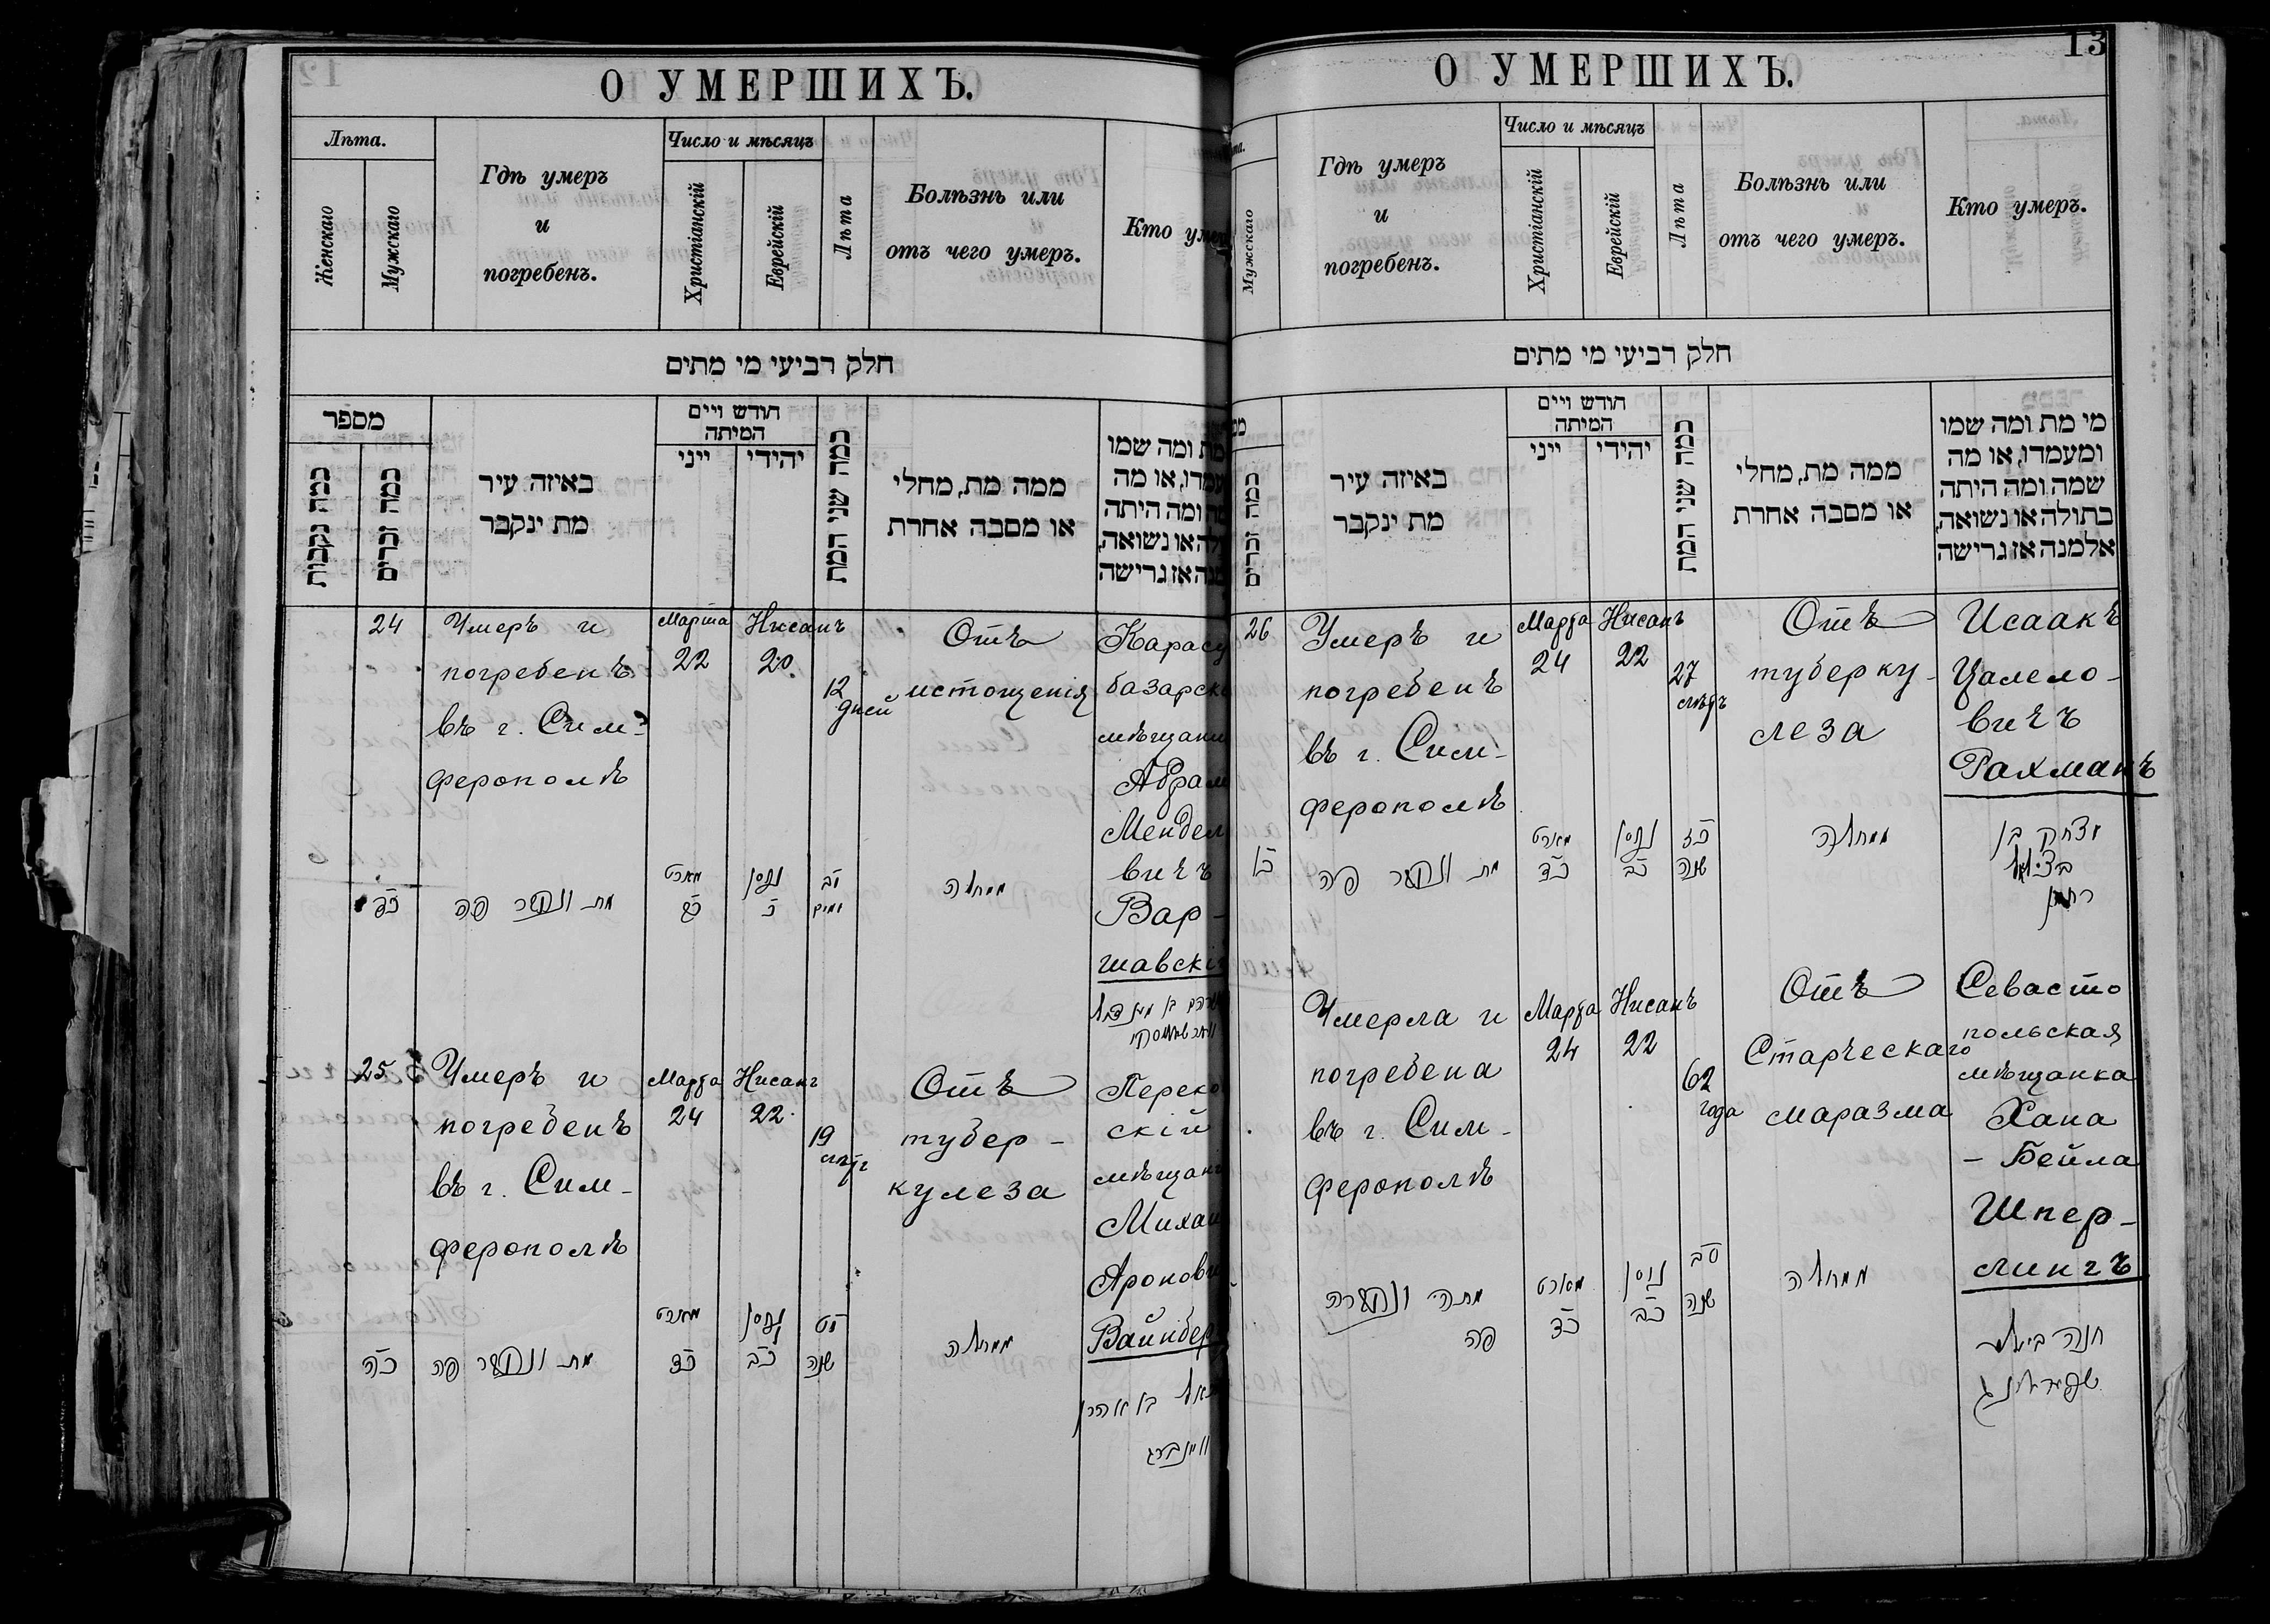 О УМЕРШИХЪ.
Лѣта.
Женскаго
Мужскаго
Гдѣ умеръ
и
погребенъ.
Число и мѣсяцъ
Христіанскій
Еврейскій
Лѣта
Болѣзнь или
отъ чего умеръ.
Кто умер
חלק רביעי מי מתים
מספר
כמה נקבות
כמה זכרים
באיזה עיר
מת ינקבר
חודש ויים
המיתה
ייני
יהידי
כמה שני המת
ממה מת, מחלי
או מסבה אחרת
מת ומה שמו
עמדו, או מה
ומה היתה
או נשואה,
מנה אז גרישה
24
Умеръ и
погребенъ
въ г. Сим-
ферополѣ
Марта
22
Нисанъ
20
12
дней
Отъ
истощенія
Карасу
базарск
мѣщани
Абрам
Мендел
вичъ
Вар-
шавскі
מת ונקבר פה
מארט
כב
ניסן
כ
יב
ימים
ממחלה
25
Умеръ и
погребенъ
въ г. Сим-
ферополѣ
Марта
24
Нисанъ
22
19
лѣтъ
Отъ
тубер-
кулеза
Переко
скій
мѣщани
Михаи
Аронови
Вайнбер
כה
מת ונקבר פה
מארט
כד
ניסן
כב
יט
שנה
ממחלה
בן אהרן
וויינבערג
13
О УМЕРШИХЪ.
Мужскаго
Гдѣ умеръ
и
погребенъ.
Число и мѣсяцъ
Христіанскій
Еврейскій
Лѣта
Болѣзнь или
отъ чего умеръ.
Кто умеръ.
חלק רביעי מי מתים
כמה זכרים
באיזה עיר
מת ינקבר
חודש ויים
המיתה
ייני
יהידי
כמה שני המת
ממה מת, מחלי
או מסבה אחרת
מי מת ומה שמו
ומעמדו, או מה
שמה ומה היתה
בתולה או נשואה,
אלמנה אז גרישה
26
Умеръ и
погребенъ
въ г. Сим-
ферополѣ
Марта
24
Нисанъ
22
27
лѣтъ
Отъ
туберку-
леза
Исаакъ
Цалело-
вичъ
Рахманъ
כו
מת ונקבר פה
מארט
כד
ניסן
כב
כז
שנה
ממחלה
יצחק בן
בצלאל
רחמן
Умерла и
погребена
въ г. Сим-
ферополѣ
Марта
24
Нисанъ
22
62
года
Отъ
Старческаго
маразма
Севасто
польская
мѣщанка
Хана
-Бейла
Шпер-
лингъ
מתה ונקברה
פה
מארט
כד
ניסן
כב
סב
שנה
ממחלה
חנה ביילע
שפערלינג